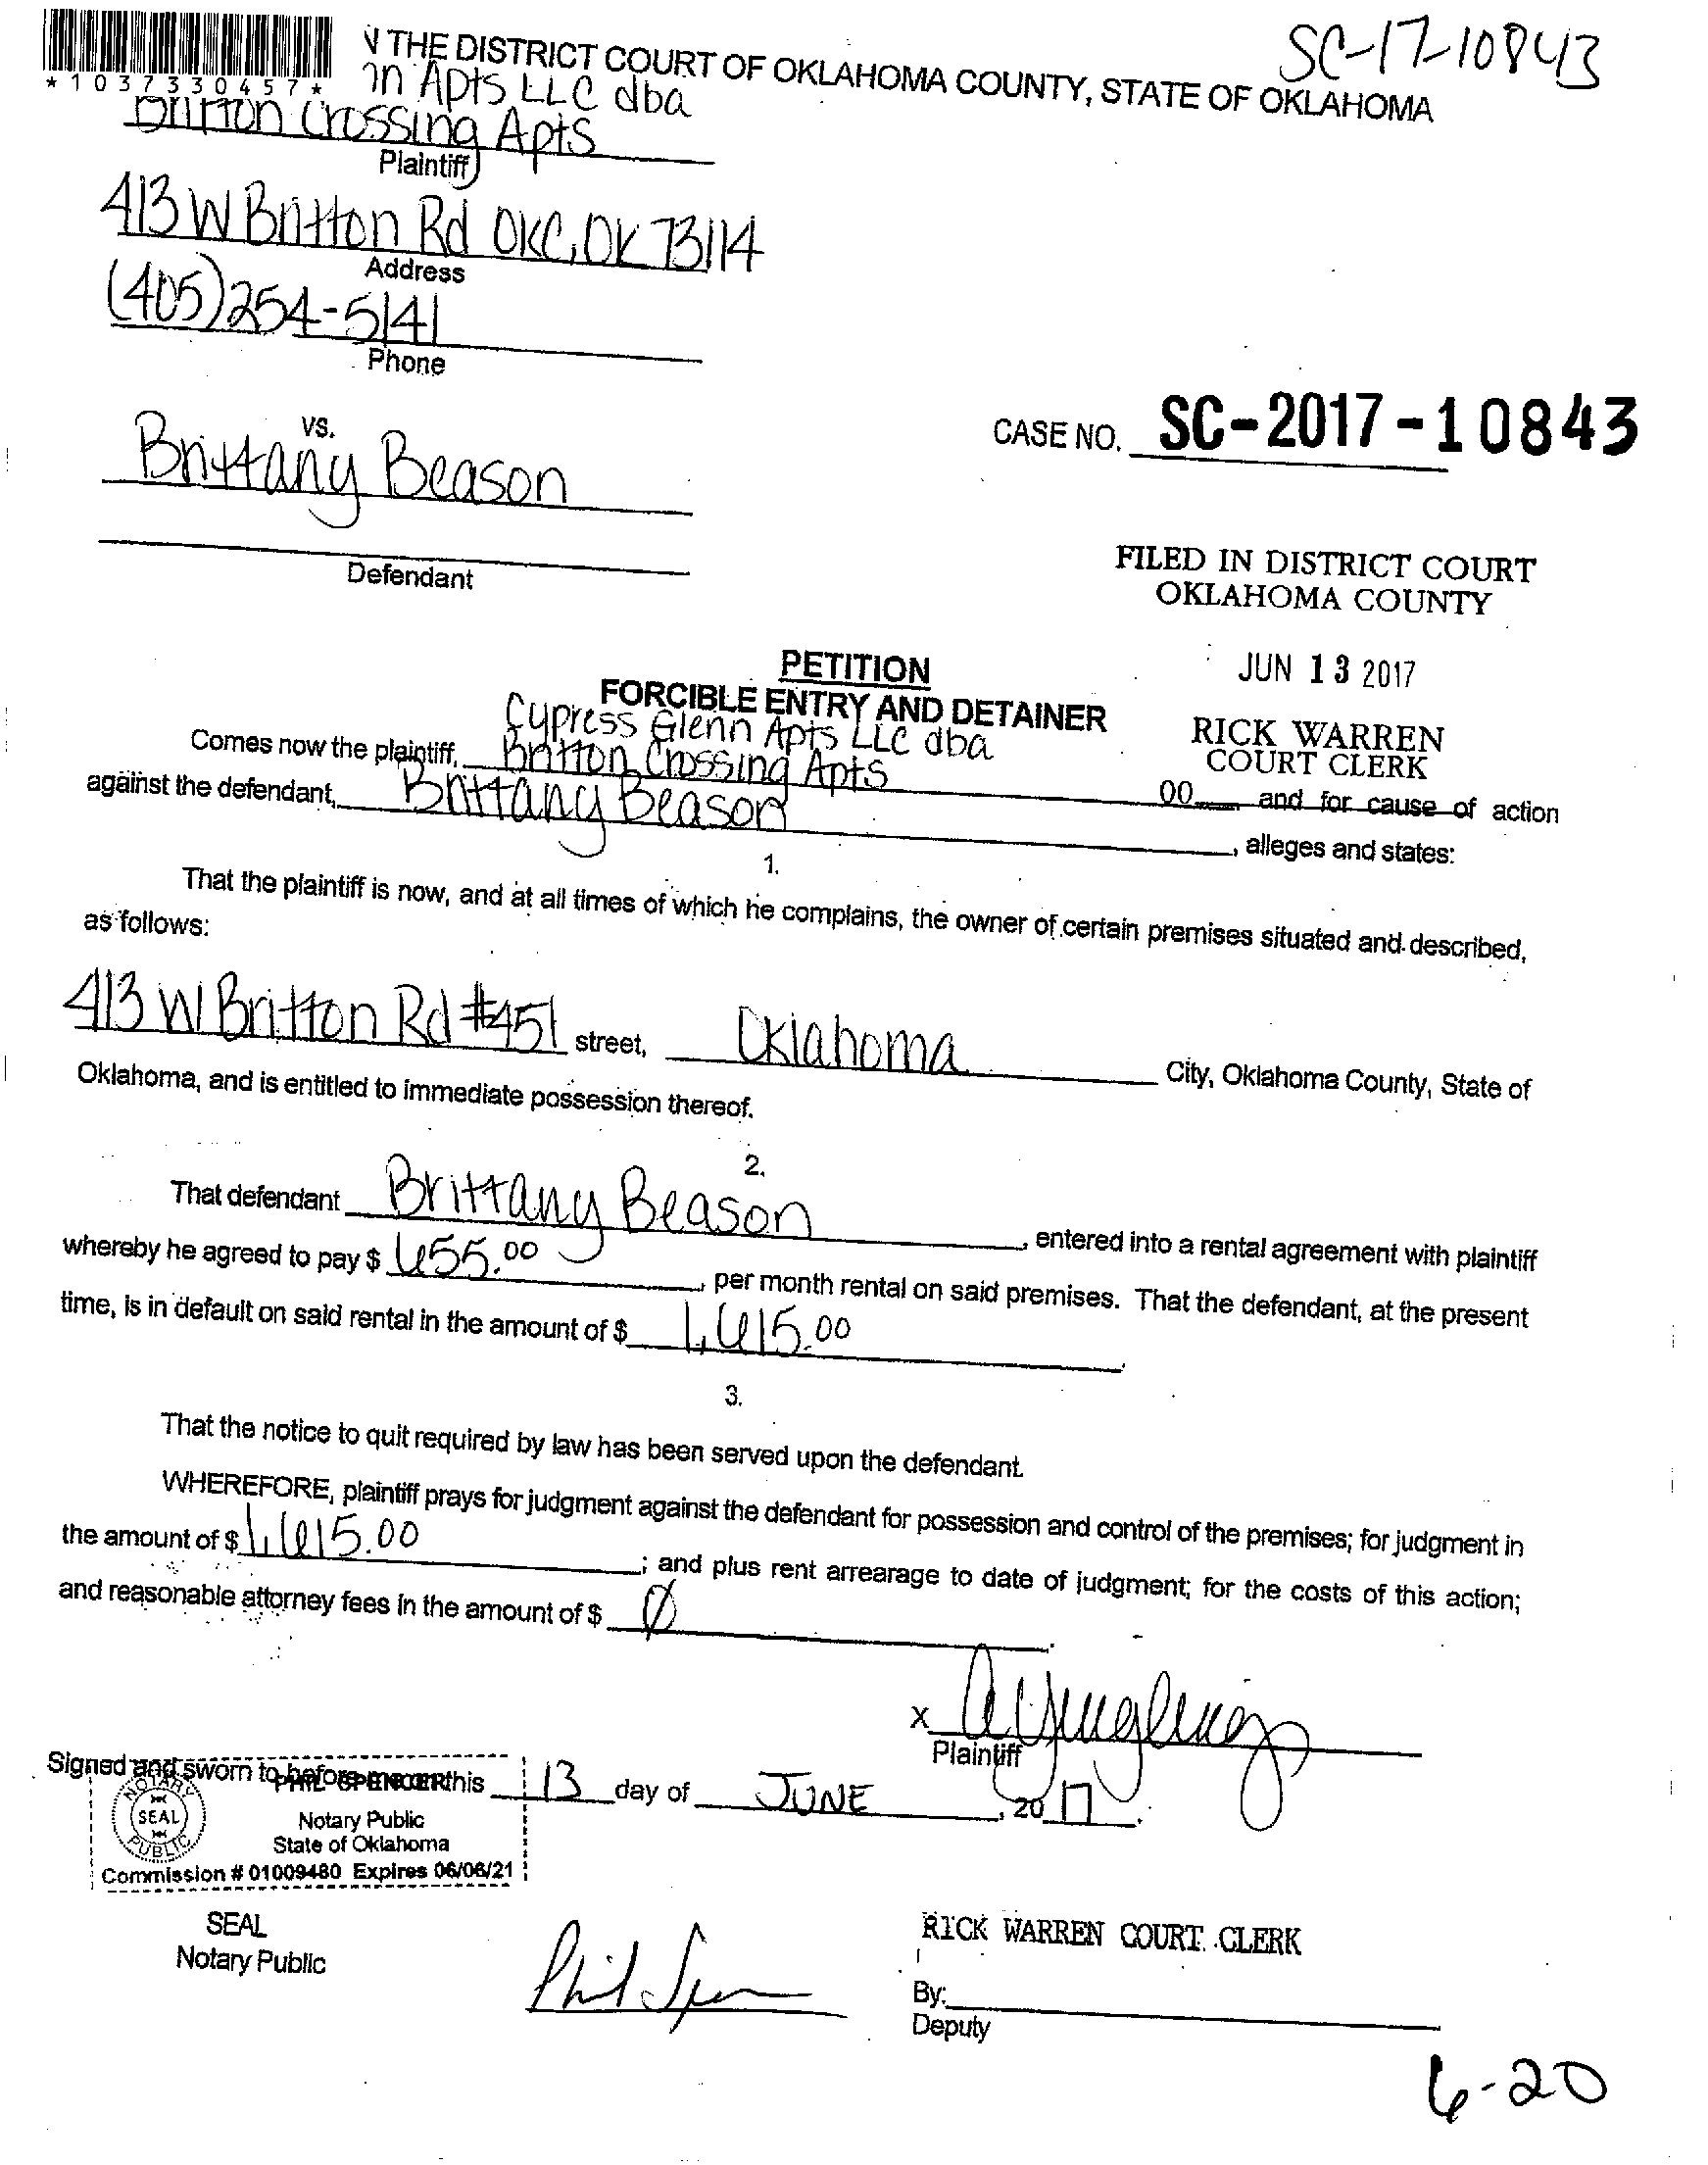 SC-17-10843
*1037330457*
N THE DISTRICT COURT OF OKLAHOMA COUNTY, STATE OF OKLAHOMA
nn Apts LLC dba
Britton Crossing Apts
Plaintiff
413 W Britton Rd OKC, OK 73114
Address
(405) 254-5141
Phone
vs.
Brittany Beason
CASE NO. SC-2017-10843
Defendant
FILED IN DISTRICT COURT
OKLAHOMA COUNTY
JUN 13 2017
RICK WARREN
COURT CLERK
PETITION
FORCIBLE ENTRY AND DETAINER
Cypress Glenn Apts LLC dba
Comes now the plaintiff, Britton Crossing Apts 00 and for cause of action
against the defendant, Brittany Beason, alleges and states:
1.
That the plaintiff is now, and at all times of which he complains, the owner of certain premises situated and described,
as follows:
413 W Britton Rd #451 street, Oklahoma City, Oklahoma County, State of
Oklahoma, and is entitled to immediate possession thereof.
2.
That defendant Brittany Beason, entered into a rental agreement with plaintiff
whereby he agreed to pay $ 655.00, per month rental on said premises. That the defendant, at the present
time, is in default on said rental in the amount of $ 1,615.00.
3.
That the notice to quit required by law has been served upon the defendant.
WHEREFORE, plaintiff prays for judgment against the defendant for possession and control of the premises; for judgment in
the amount of $ 1,615.00; and plus rent arrearage to date of judgment; for the costs of this action;
and reasonable attorney fees in the amount of $ Ø.
x
Plaintiff
Signed and sworn to before me on this 13 day of JUNE, 20 17.
PHIL SPENCER
NOTARY PUBLIC SEAL
Notary Public
State of Oklahoma
Commission # 01009480 Expires 06/06/21
SEAL
Notary Public
Phil Spencer
RICK WARREN COURT CLERK
By:
Deputy
6-20